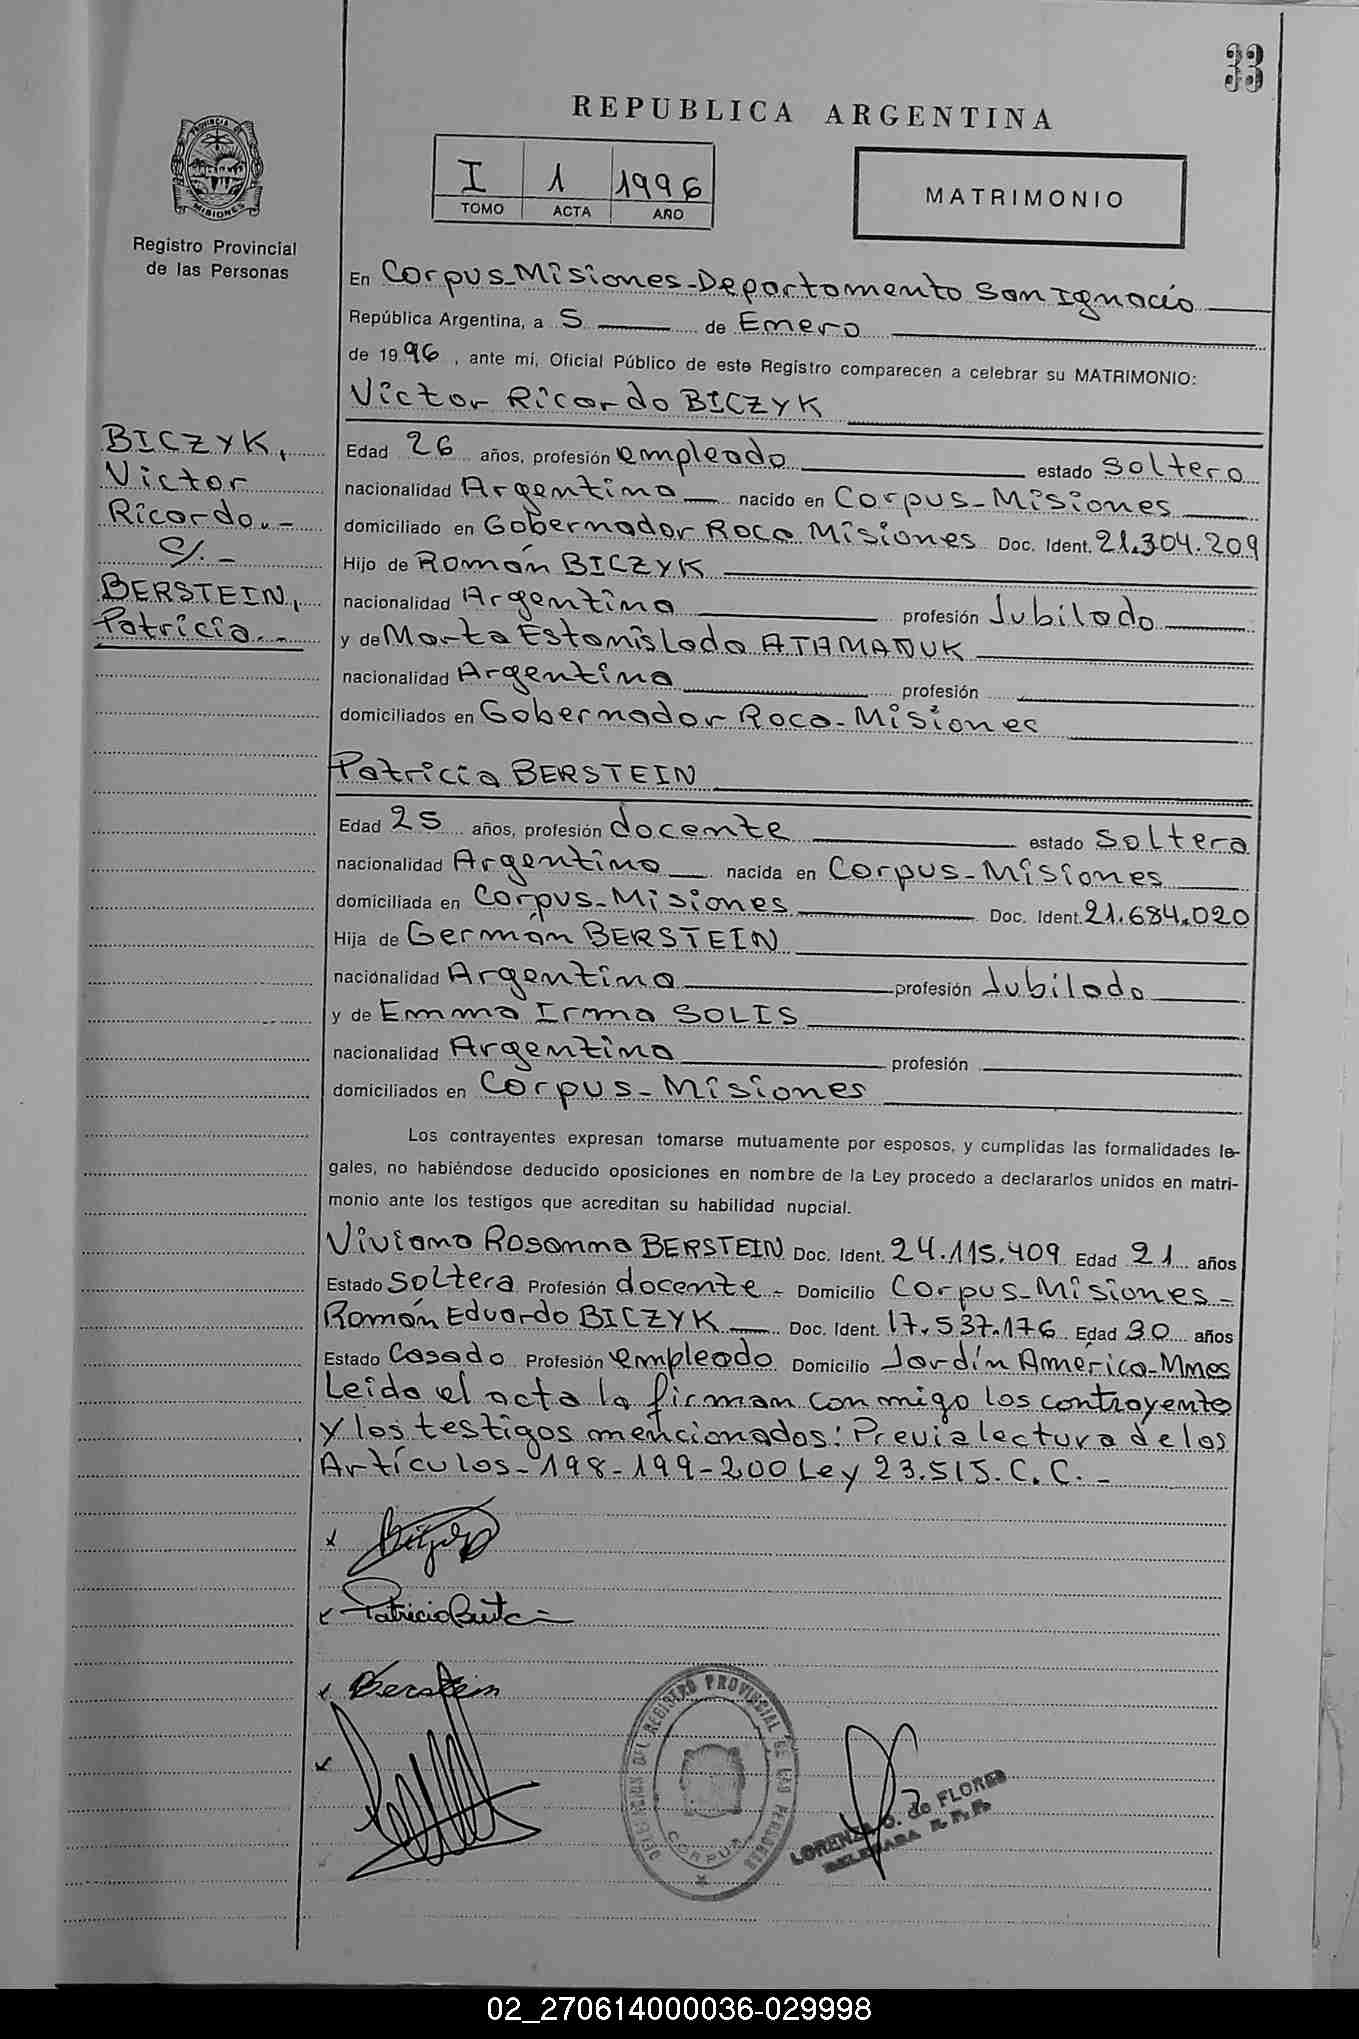 33
REPUBLICA ARGENTINA
PROVINCIA DE
MISIONES
Registro Provincial
de las Personas
I 1 1996
TOMO ACTA AÑO
MATRIMONIO
En Corpus-Misiones-Departamento San Ignacio
República Argentina, a 5 de Enero
de 1996, ante mí, Oficial Público de este Registro comparecen a celebrar su MATRIMONIO:
Victor Ricardo BICZYK
BICZYK,
Victor
Ricardo.-
c/.-
BERSTEIN,
Patricia.-
Edad 26 años, profesión empleado estado soltero
nacionalidad Argentina nacido en Corpus-Misiones
domiciliado en Gobernador Roca Misiones Doc. Ident. 21.304.209
Hijo de Román BICZYK
nacionalidad Argentina profesión Jubilado
y de Marta Estanislada ATAMANUK
nacionalidad Argentina profesión
domiciliados en Gobernador Roca-Misiones
Patricia BERSTEIN
Edad 25 años, profesión docente estado soltera
nacionalidad Argentina nacida en Corpus-Misiones
domiciliada en Corpus-Misiones Doc. Ident. 21.684.020
Hija de Germán BERSTEIN
nacionalidad Argentina profesión Jubilado
y de Emma Irma SOLIS
nacionalidad Argentina profesión
domiciliados en Corpus-Misiones
Los contrayentes expresan tomarse mutuamente por esposos, y cumplidas las formalidades le-
gales, no habiéndose deducido oposiciones en nombre de la Ley procedo a declararlos unidos en matri-
monio ante los testigos que acreditan su habilidad nupcial.
Viviana Rosanna BERSTEIN Doc. Ident. 24.115.409 Edad 21 años
Estado soltera Profesión docente - Domicilio Corpus-Misiones-
Román Eduardo BICZYK Doc. Ident. 17.537.176 Edad 30 años
Estado Casado Profesión empleado Domicilio Jardín América-Mnes
Leida el acta la firman conmigo los contrayente
y los testigos mencionados: Previa lectura de los
Artículos-198-199-200 Ley 23.515.C.C.-
Patricia Berstein
Berstein
DELEGACION DEL REGISTRO PROVINCIAL DE LAS PERSONAS
CORPUS
LORENZA O. de FLORES
DELEGADA R.P.P.
02_270614000036-029998